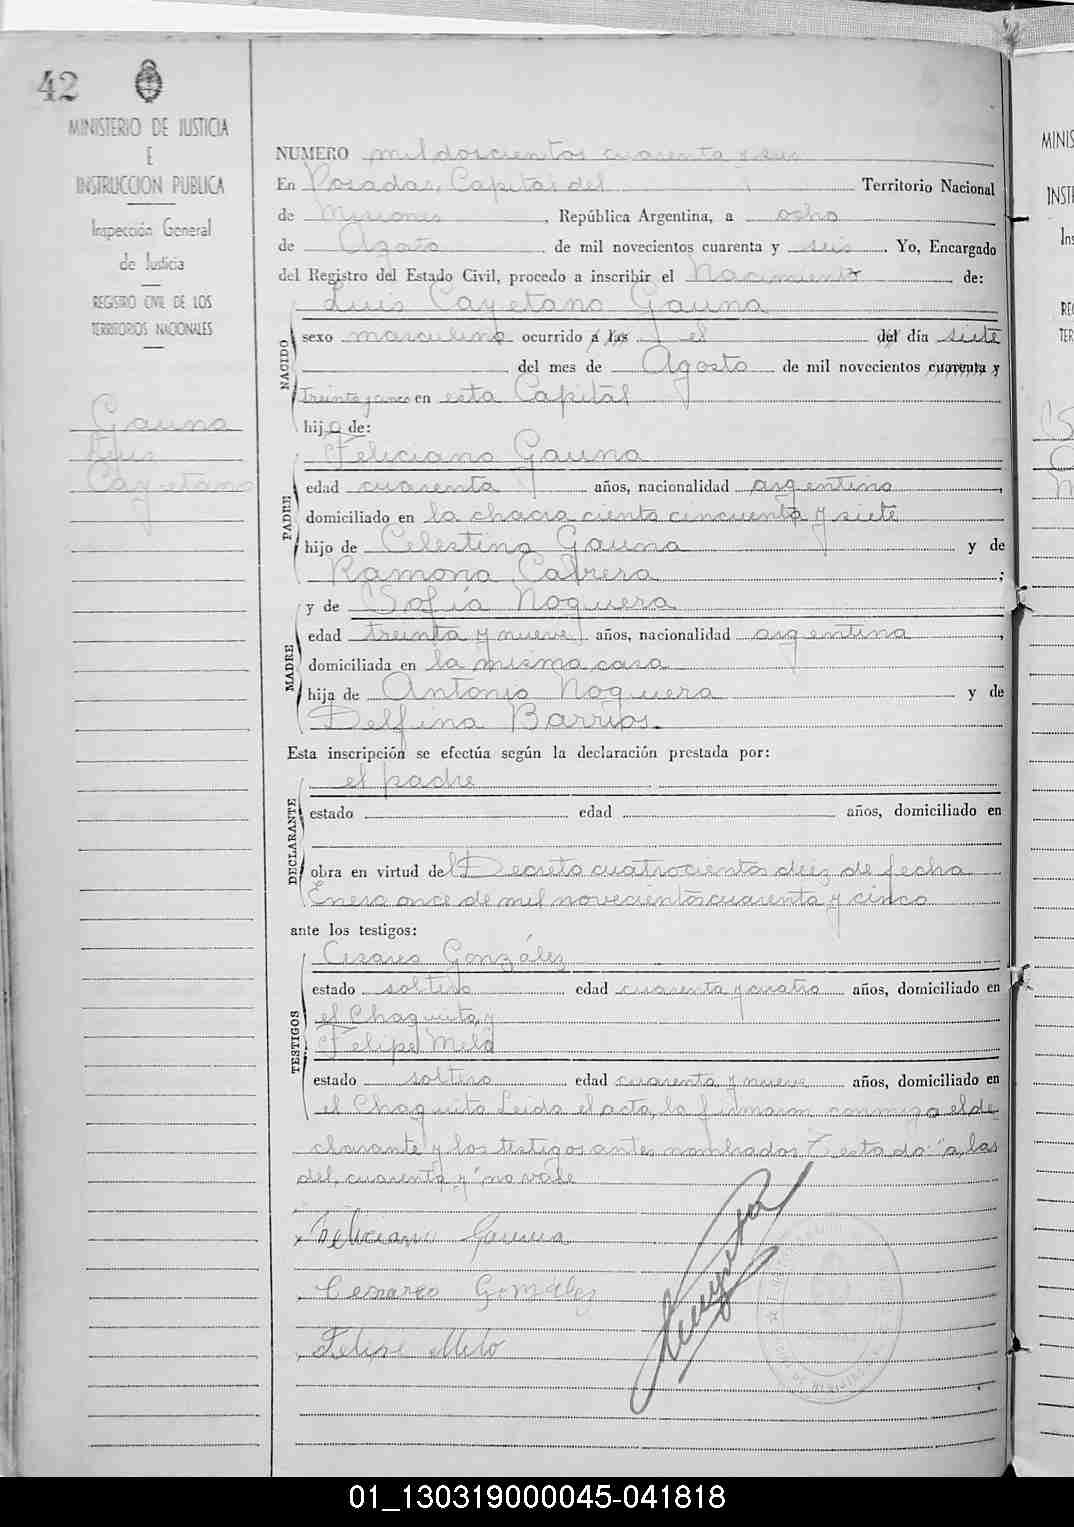 42
MINISTERIO DE JUSTICIA
E
INSTRUCCION PUBLICA
Inspección General
de Justicia
REGISTRO CIVIL DE LOS
TERRITORIOS NACIONALES
Gauna
Luis
Cayetano
NUMERO mil doscientos cuarenta y seis
En Posadas, Capital del Territorio Nacional
de Misiones, República Argentina, a ocho
de Agosto de mil novecientos cuarenta y seis. Yo, Encargado
del Registro del Estado Civil, procedo a inscribir el Nacimiento de:
NACIDO
Luis Cayetano Gauna
sexo masculino ocurrido a las el del día siete
del mes de Agosto de mil novecientos cuarenta y
treinta y cinco en esta Capital
hijo de:
PADRE
Feliciano Gauna
edad cuarenta años, nacionalidad argentino,
domiciliado en la chacra ciento cincuenta y siete
hijo de Celestino Gauna y de
Ramona Cabrera;
MADRE
y de Sofía Noguera
edad treinta y nueve años, nacionalidad argentina,
domiciliada en la misma casa
hija de Antonio Noguera y de
Delfina Barrios.
Esta inscripción se efectúa según la declaración prestada por:
DECLARANTE
el padre
estado edad años, domiciliado en
obra en virtud del Decreto cuatrocientos diez de fecha
Enero once de mil novecientos cuarenta y cinco
ante los testigos:
TESTIGOS
Cesareo González
estado soltero edad cuarenta y cuatro años, domiciliado en
el Chaquito, y
Felipe Melo
estado soltero edad cuarenta y nueve años, domiciliado en
el Chaquito Leida el acta, la firmaron conmigo el de
clarante y los testigos antes nombrados Testado: "a las
del, cuarenta y" no vale
Feliciano Gauna
Cesareo González
Felipe Melo
MINIS
INST
Ins
RE
TER
01_130319000045-041818